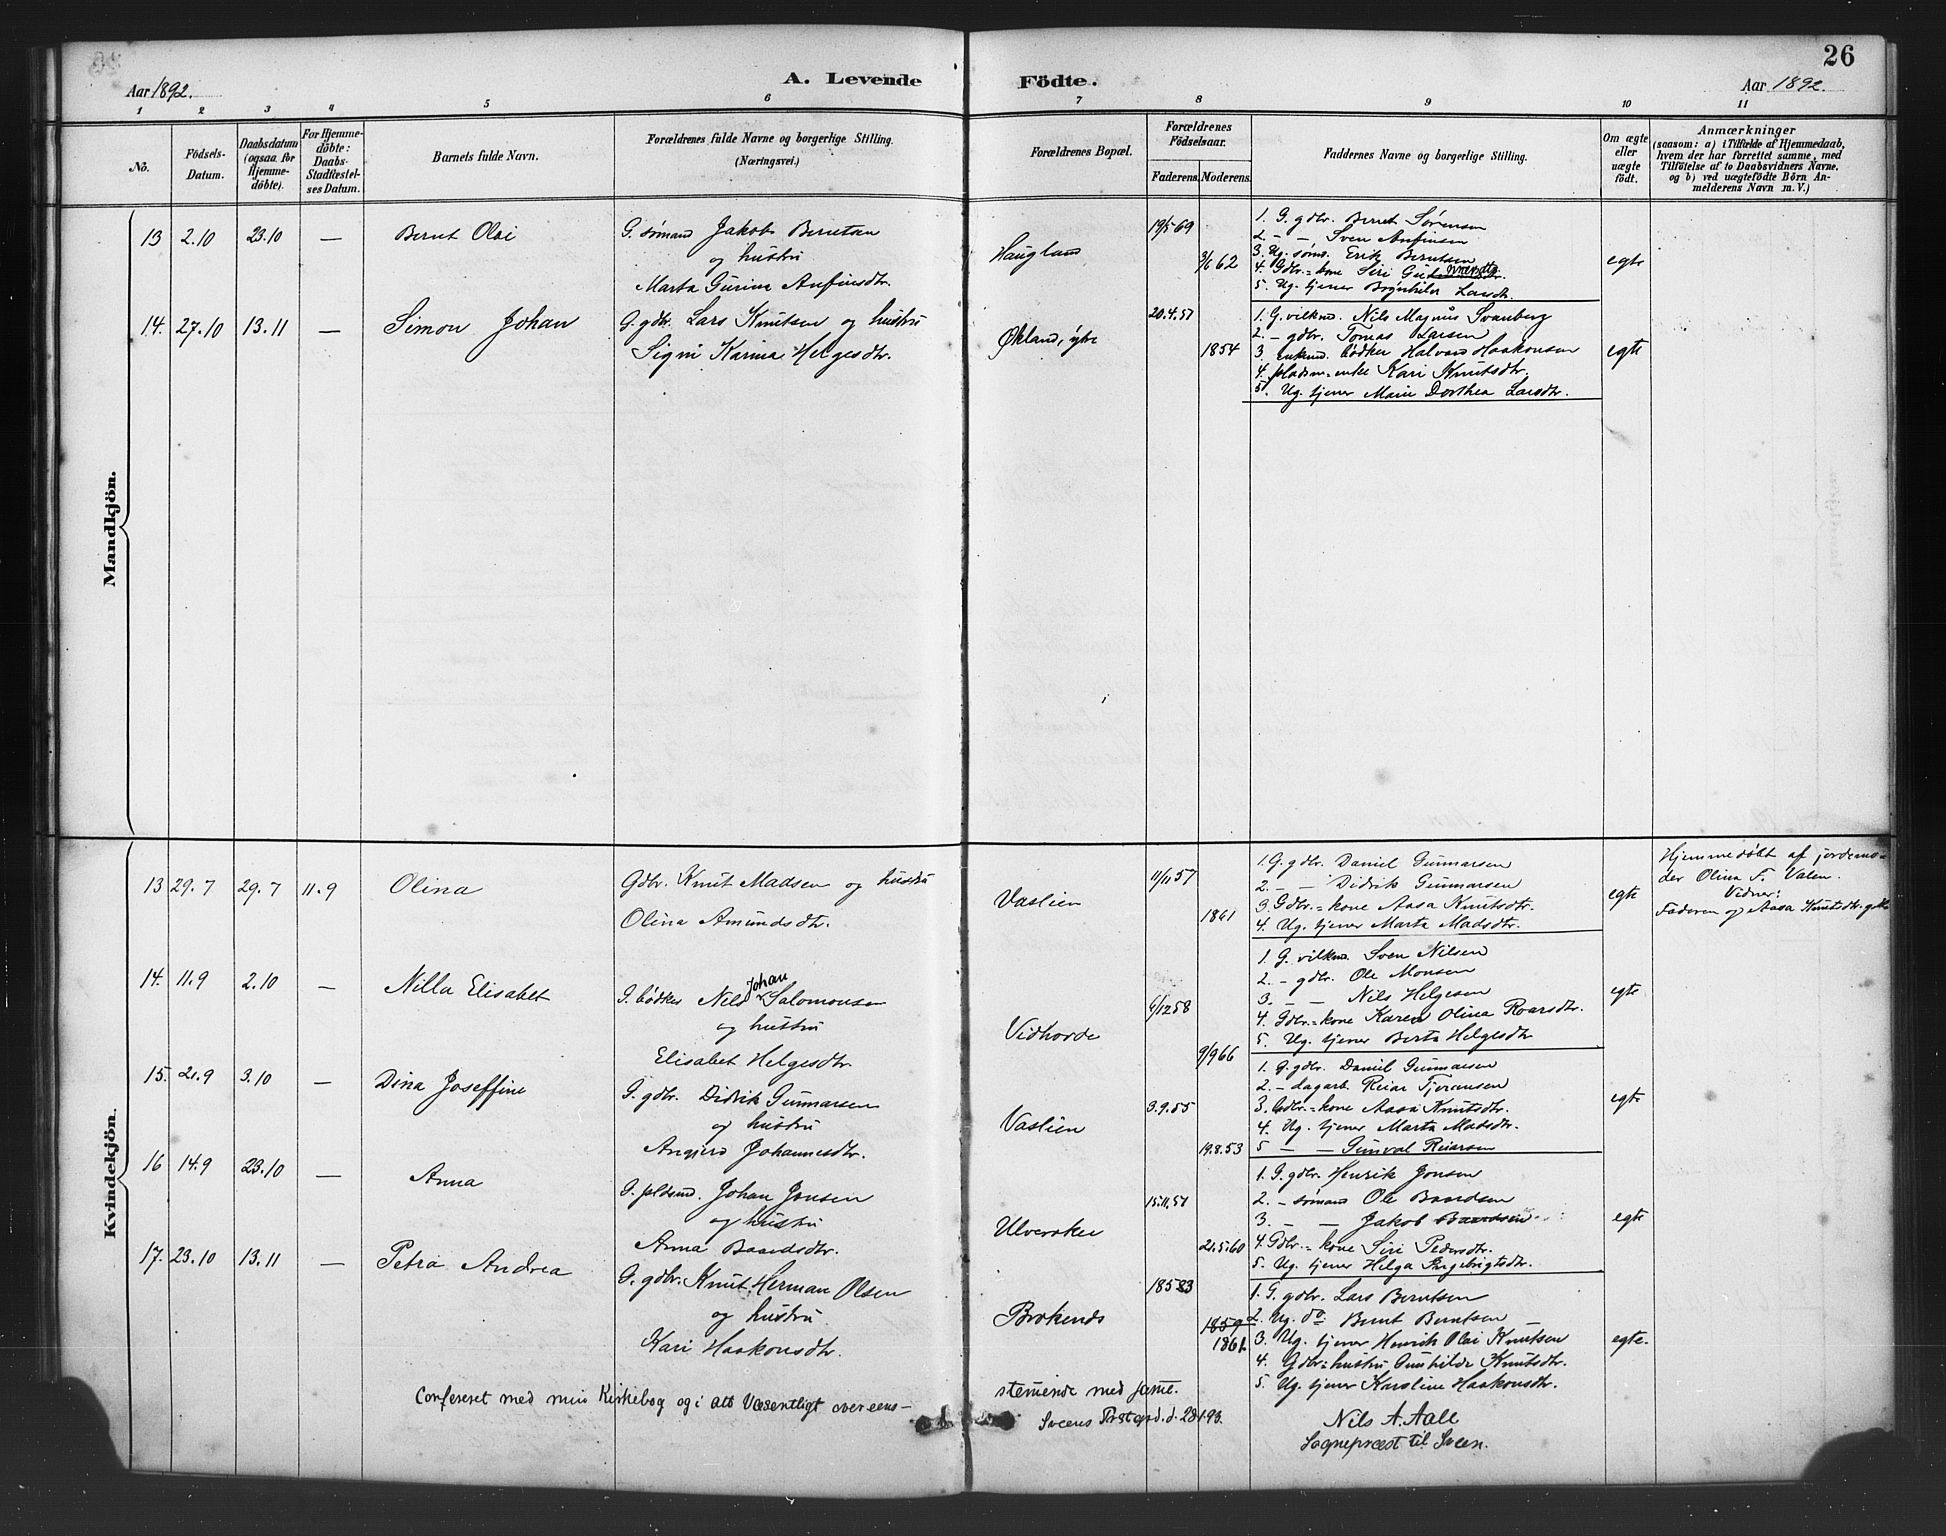 26
A. Levende Födte.
Aar 1892.
Aar 1892.
1 2 3 4 5 6 7 8 9 10 11
No.
Födsels-Datum.
Daabsdatum (ogsaa for Hjemmedöbte).
For Hjemmedöbte: Daabs-Stadfæstelses Datum.
Barnets fulde Navn.
Forældrenes fulde Navne og borgerlige Stilling. (Næringsvei.)
Forældrenes Bopæl.
Forældrenes Födselsaar.
Faderens. Moderens.
Faddernes Navne og borgerlige Stilling.
Om ægte eller uægte födt.
Anmærkninger
(saasom: a) i Tilfælde af Hjemmedaab, hvem der har forrettet samme, med Tilföielse af to Daabsvidners Navne, og b) ved uægtefödte Börn Anmelderens Navn m. V.)
Mandkjön.
13 2.10 23.10 — Bernt Olai
G. sømand Jakob Berntsen
og hustru
Marta Gurine Anfinsdtr.
Haugland
19/5 69
3/6 62
1. G. gdbr. Bernt Sørensen
2. — — Sven Anfinsen
3. Ug. søms. Erik Berntsen
4. Gdbr.=kone Siri
5. Ug. tjener Brynhilda Larsdtr.
egte
14. 27.10 13.11 — Simon Johan
G. gdbr. Lars Knutsen og hustru
Signi Karina Helgesdtr.
Økland, ytre
20.4.57
1854
1. G. vilkmd. Nils Magnus Svanberg
2. — gdbr. Tomas Larsen
3. enkmd. bødker Halvard Haakonsen
4. pladsm=enke Kari Knutsdtr.
5. Ug. tjener Marie Dorthea Larsdtr.
egte
Kvindekjön.
13 29.7 29.7 11.9 Olina
Gdbr. Knut Madsen og hustru
Olina Amundsdtr.
Vaslien
11/11 57
1861
1. G. gdbr. Daniel Gunnarsen
2. — — Didrik Gunnarsen
3. Gdbr.=kone Aasa Knutsdtr.
4. Ug. tjener Marta Madsdtr.
egte
Hjemmedøbt af jordemo-
der Olina F. Valen.
Vidner:
Faderen og Aasa Knutsdtr.
14. 11.9 2.10 — Nilla Elisabet
G. bødker Nils Johan Salomonsen
og hustru
Elisabet Helgesdtr.
Vidhovde
6/12 58
9/9 66
1. G. vilkmd Sven Nilsen
2. — gdbr. Ole Monsen
3. — — Nils Helgesen
4. Gdbr.=kone Karen Olina Roarsdtr.
5. Ug. tjener Berta Helgesdtr
egte
15. 21.9 3.10 — Dina Joseffine
G. gdbr. Didrik Gunnarsen
og hustru
Angjerd Johannesdtr.
Vaslien
3.9.55
19.8.53
1. G. gdbr. Daniel Gunnarsen
2. — dagarb. Reiar Tjeransen
3. Gdbr.=kone Aasa Knutsdtr.
4. Ug. tjener Marta Madsdtr.
5 — — Gunval Reiarsen
egte
16 14.9 23.10 — Anna
G. pldsmd. Johan Jonsen
og hustru
Anna Baardsdtr.
Ulversker
15.11.57
21.5.60
1. G. gdbr. Henrik Jonsen
2. — sømand Ole Baardsen
3. — — Jakob Baardsen
4. Gdbr.=kone Siri Pedersdtr.
5. Ug. tjener Helga Ingebrigtsdtr.
egte
17. 23.10 13.11 — Petra Andrea
G. gdbr. Knut Herman Olsen
og hustru
Kari Haakonsdtr.
Brokends
1859
1861.
1. G. gdbr. Lars Berntsen
2. Ug. do Bernt Berntsen
3. Ug. tjener Henrik Olai Knutsen
4. Gdbr=hustru Gunhilda Knutsdtr.
5. Ug. tjener Karoline Haakonsdtr.
egte.
Confereret med min Kirkebog og i alt Væsentligt overens-
stemende med samme.
Sveens Prstgrd. d. 28.1.93.
Nils A. Aall
Sognepræst til Sveen.